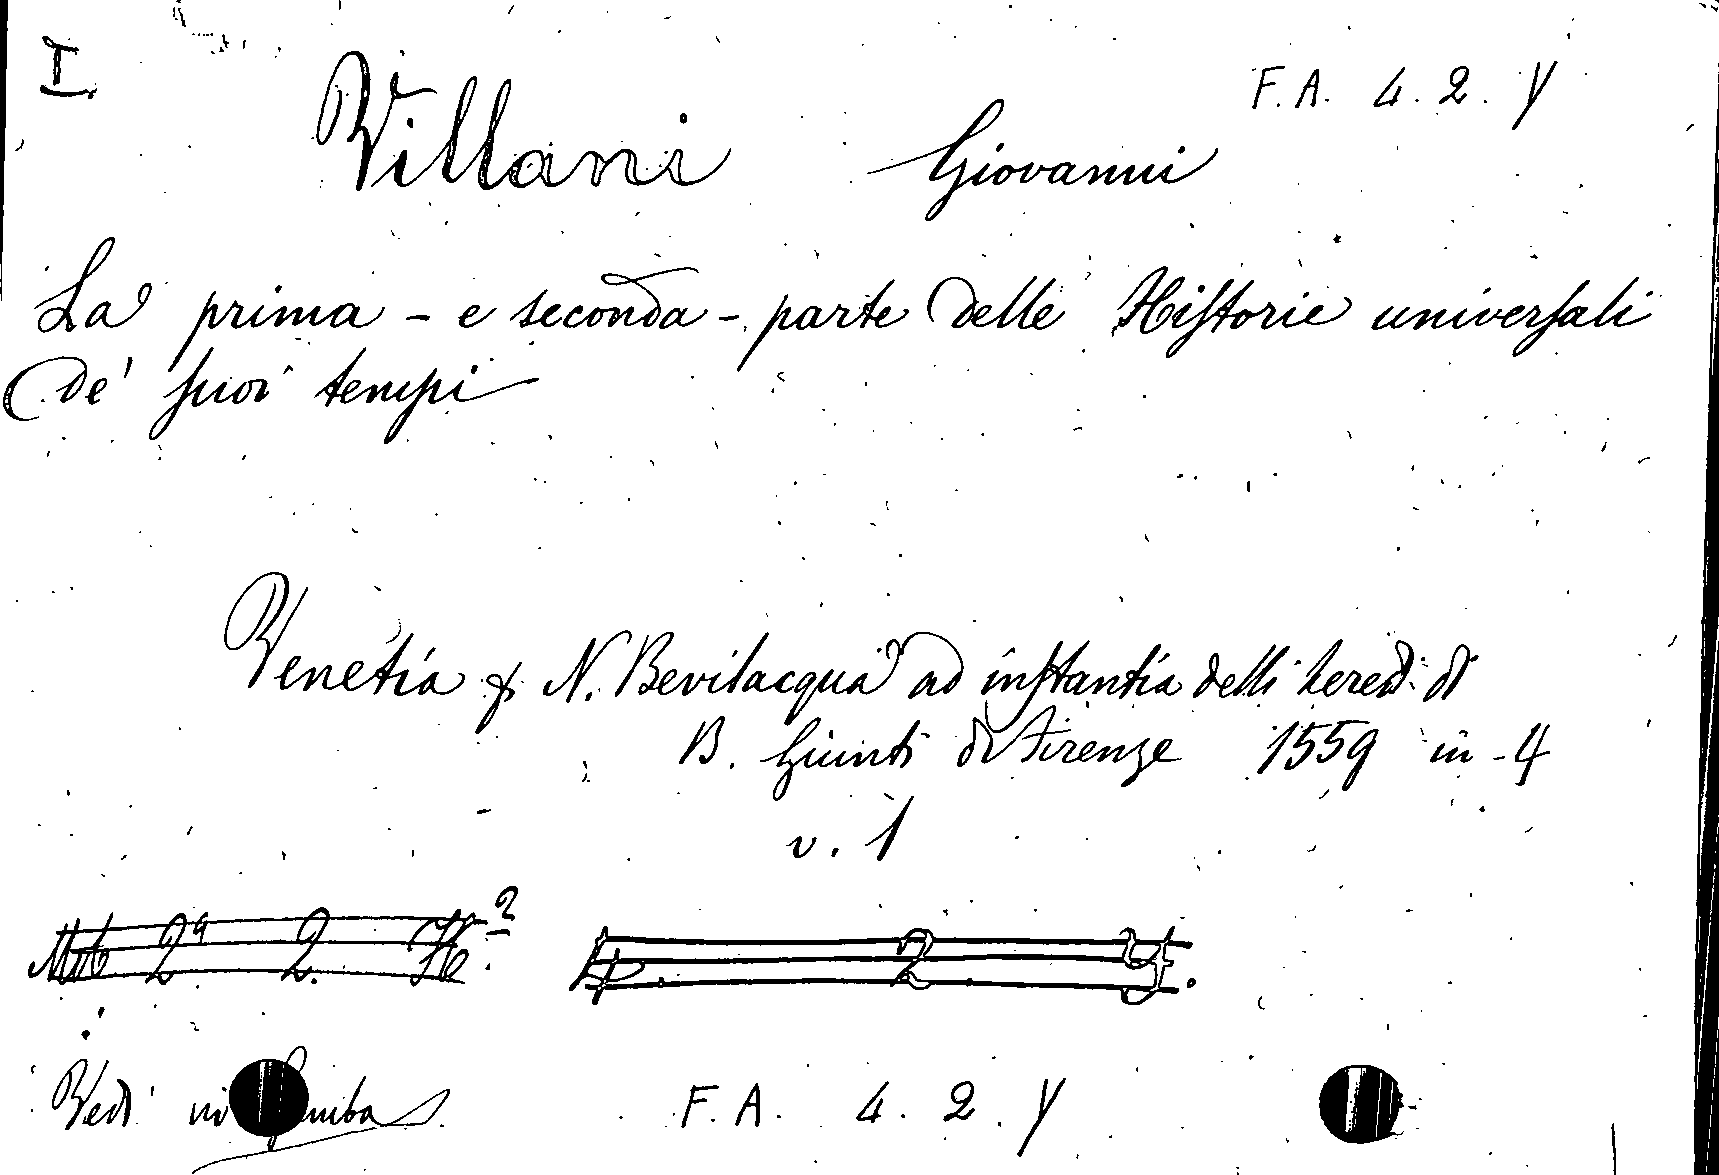 I.
F. A. 4. 2. Y
Villani Giovanni
La prima - e seconda - parte delle Historie universali
de' suoi tempi
Venetia p. N. Bevilacqua ad instantia delli heredi di
B. Giunti di Firenze 1559 in-4
v. 1
2ª 2.
4. 2 Y.
Vedi in Gamba F. A. 4. 2 Y